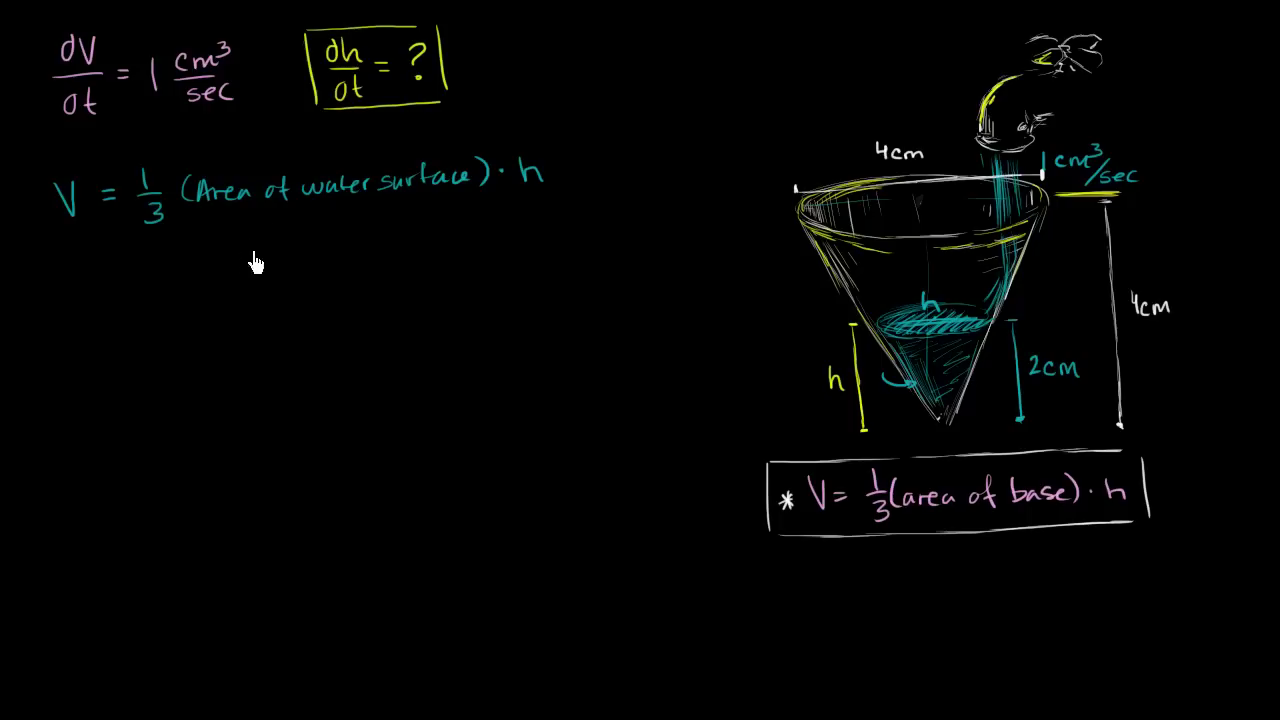 dV/dt = 1 cm³/sec
dh/dt = ?
V = 1/3 (Area of water surface) · h
4cm
1 cm³/sec
h
4cm
h
2cm
* V = 1/3 (area of base) · h